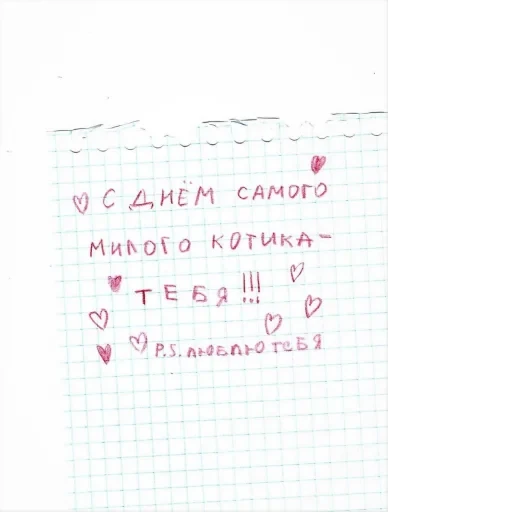 С ДНЁМ САМОГО
МИЛОГО КОТИКА-
ТЕБЯ!!!
P.S. ЛЮБЛЮ ТЕБЯ